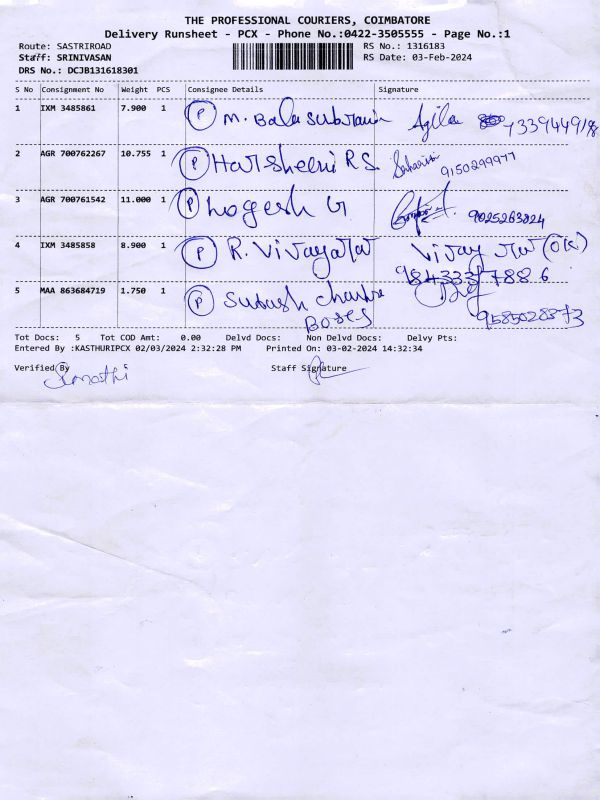 THE PROFESSIONAL COURIERS, COIMBATORE
Delivery Runsheet - PCX - Phone No.:0422-3505555 - Page No.:1
Route: SASTRIROAD RS No.: 1316183
Staff: SRINIVASAN RS Date: 03-Feb-2024
DRS No.: DCJB131618301
S No Consignment No Weight PCS Consignee Details Signature
1 IXM 3485861 7.900 1 P M. Balasubramani Agila
2 AGR 700762267 10.755 1 P Harshelni R S 9150299977
3 AGR 700761542 11.000 1 P Logesh G 9025263824
4 IXM 3485858 8.900 1 P R. Vijayaraj
5 MAA 863684719 1.750 1 P Subash Chandra
Boses 9585028373
Tot Docs: 5 Tot COD Amt: 0.00 Delvd Docs: Non Delvd Docs: Delvy Pts:
Entered By :KASTHURIPCX 02/03/2024 2:32:28 PM Printed On: 03-02-2024 14:32:34
Verified By Staff Signature